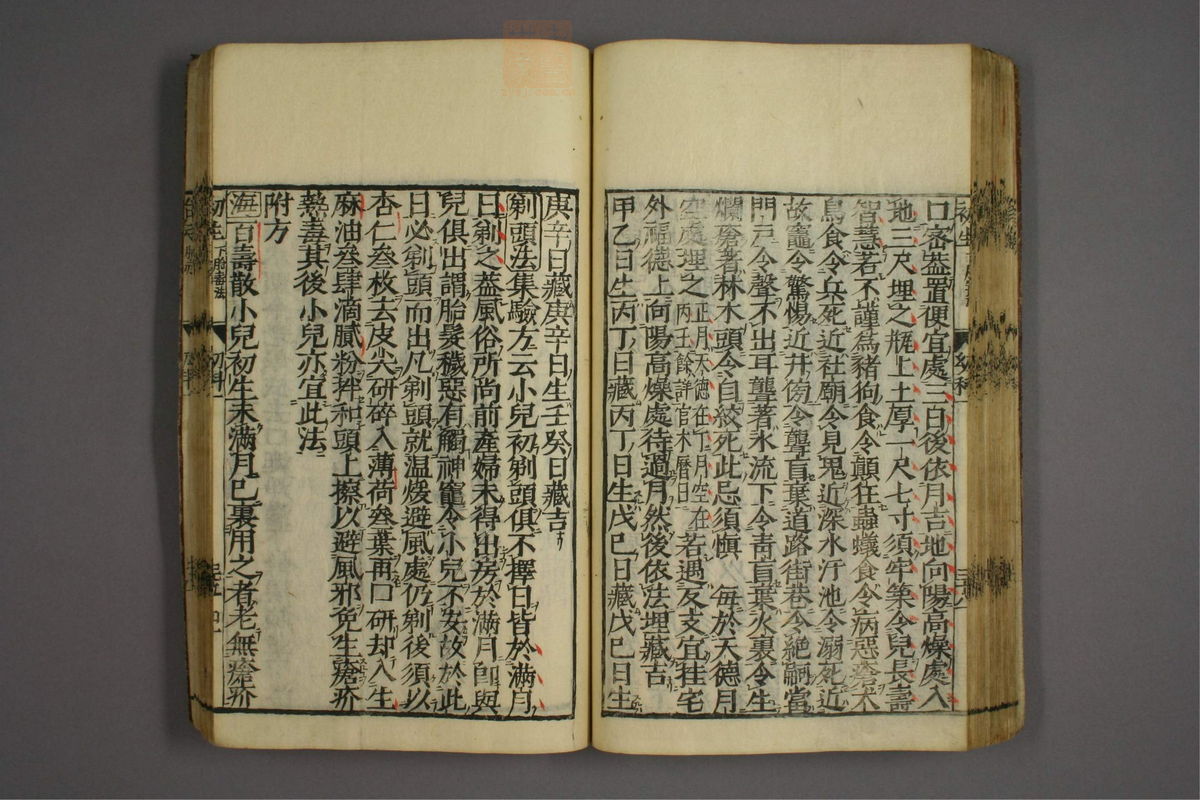 口密葢置便宜處三日後依月吉地向陽高燥處入
地三尺埋之瓶上土厚一尺七寸須牢築令兒長壽
智慧若不謹為豬狗食令顛狂蟲蟻食令病惡瘡犬
鳥食令兵死近社廟令見鬼近深水汙池令溺死近
故竈令驚惕近井傍令聾盲棄道路街巷令絕嗣當
門戶令聲不出耳聾著水流下令青盲棄火裏令生
爛瘡著林木頭令自絞死此忌須慎 毎於天德月
空處理之正月天德在丁月空在丙壬餘詳官本曆日若遇反支宜在宅
外福德上向陽高燥處待過月然後依法埋藏吉
甲乙日生丙丁日藏丙丁日生戊巳日藏戊巳日生
庚辛日藏庚辛日生壬癸日藏吉
剃頭法集驗方云小兒初剃頭俱不擇日皆於滿月
日剃之葢風俗所尚前產婦未得出房於滿月即與
兒俱出謂胎髮穢惡有觸神竈令小兒不安故於此
日必剃頭而出凡剃頭就温煖避風處仍剃後須以
杏仁叁枚去皮尖研碎入薄荷叁葉再同研却入生
麻油叁肆滴膩粉拌和頭上擦以避風邪免生瘡疥
熱毒其後小兒亦宜此法
附方
海百壽散小兒初生未滿月巳裏用之者老無瘡疥